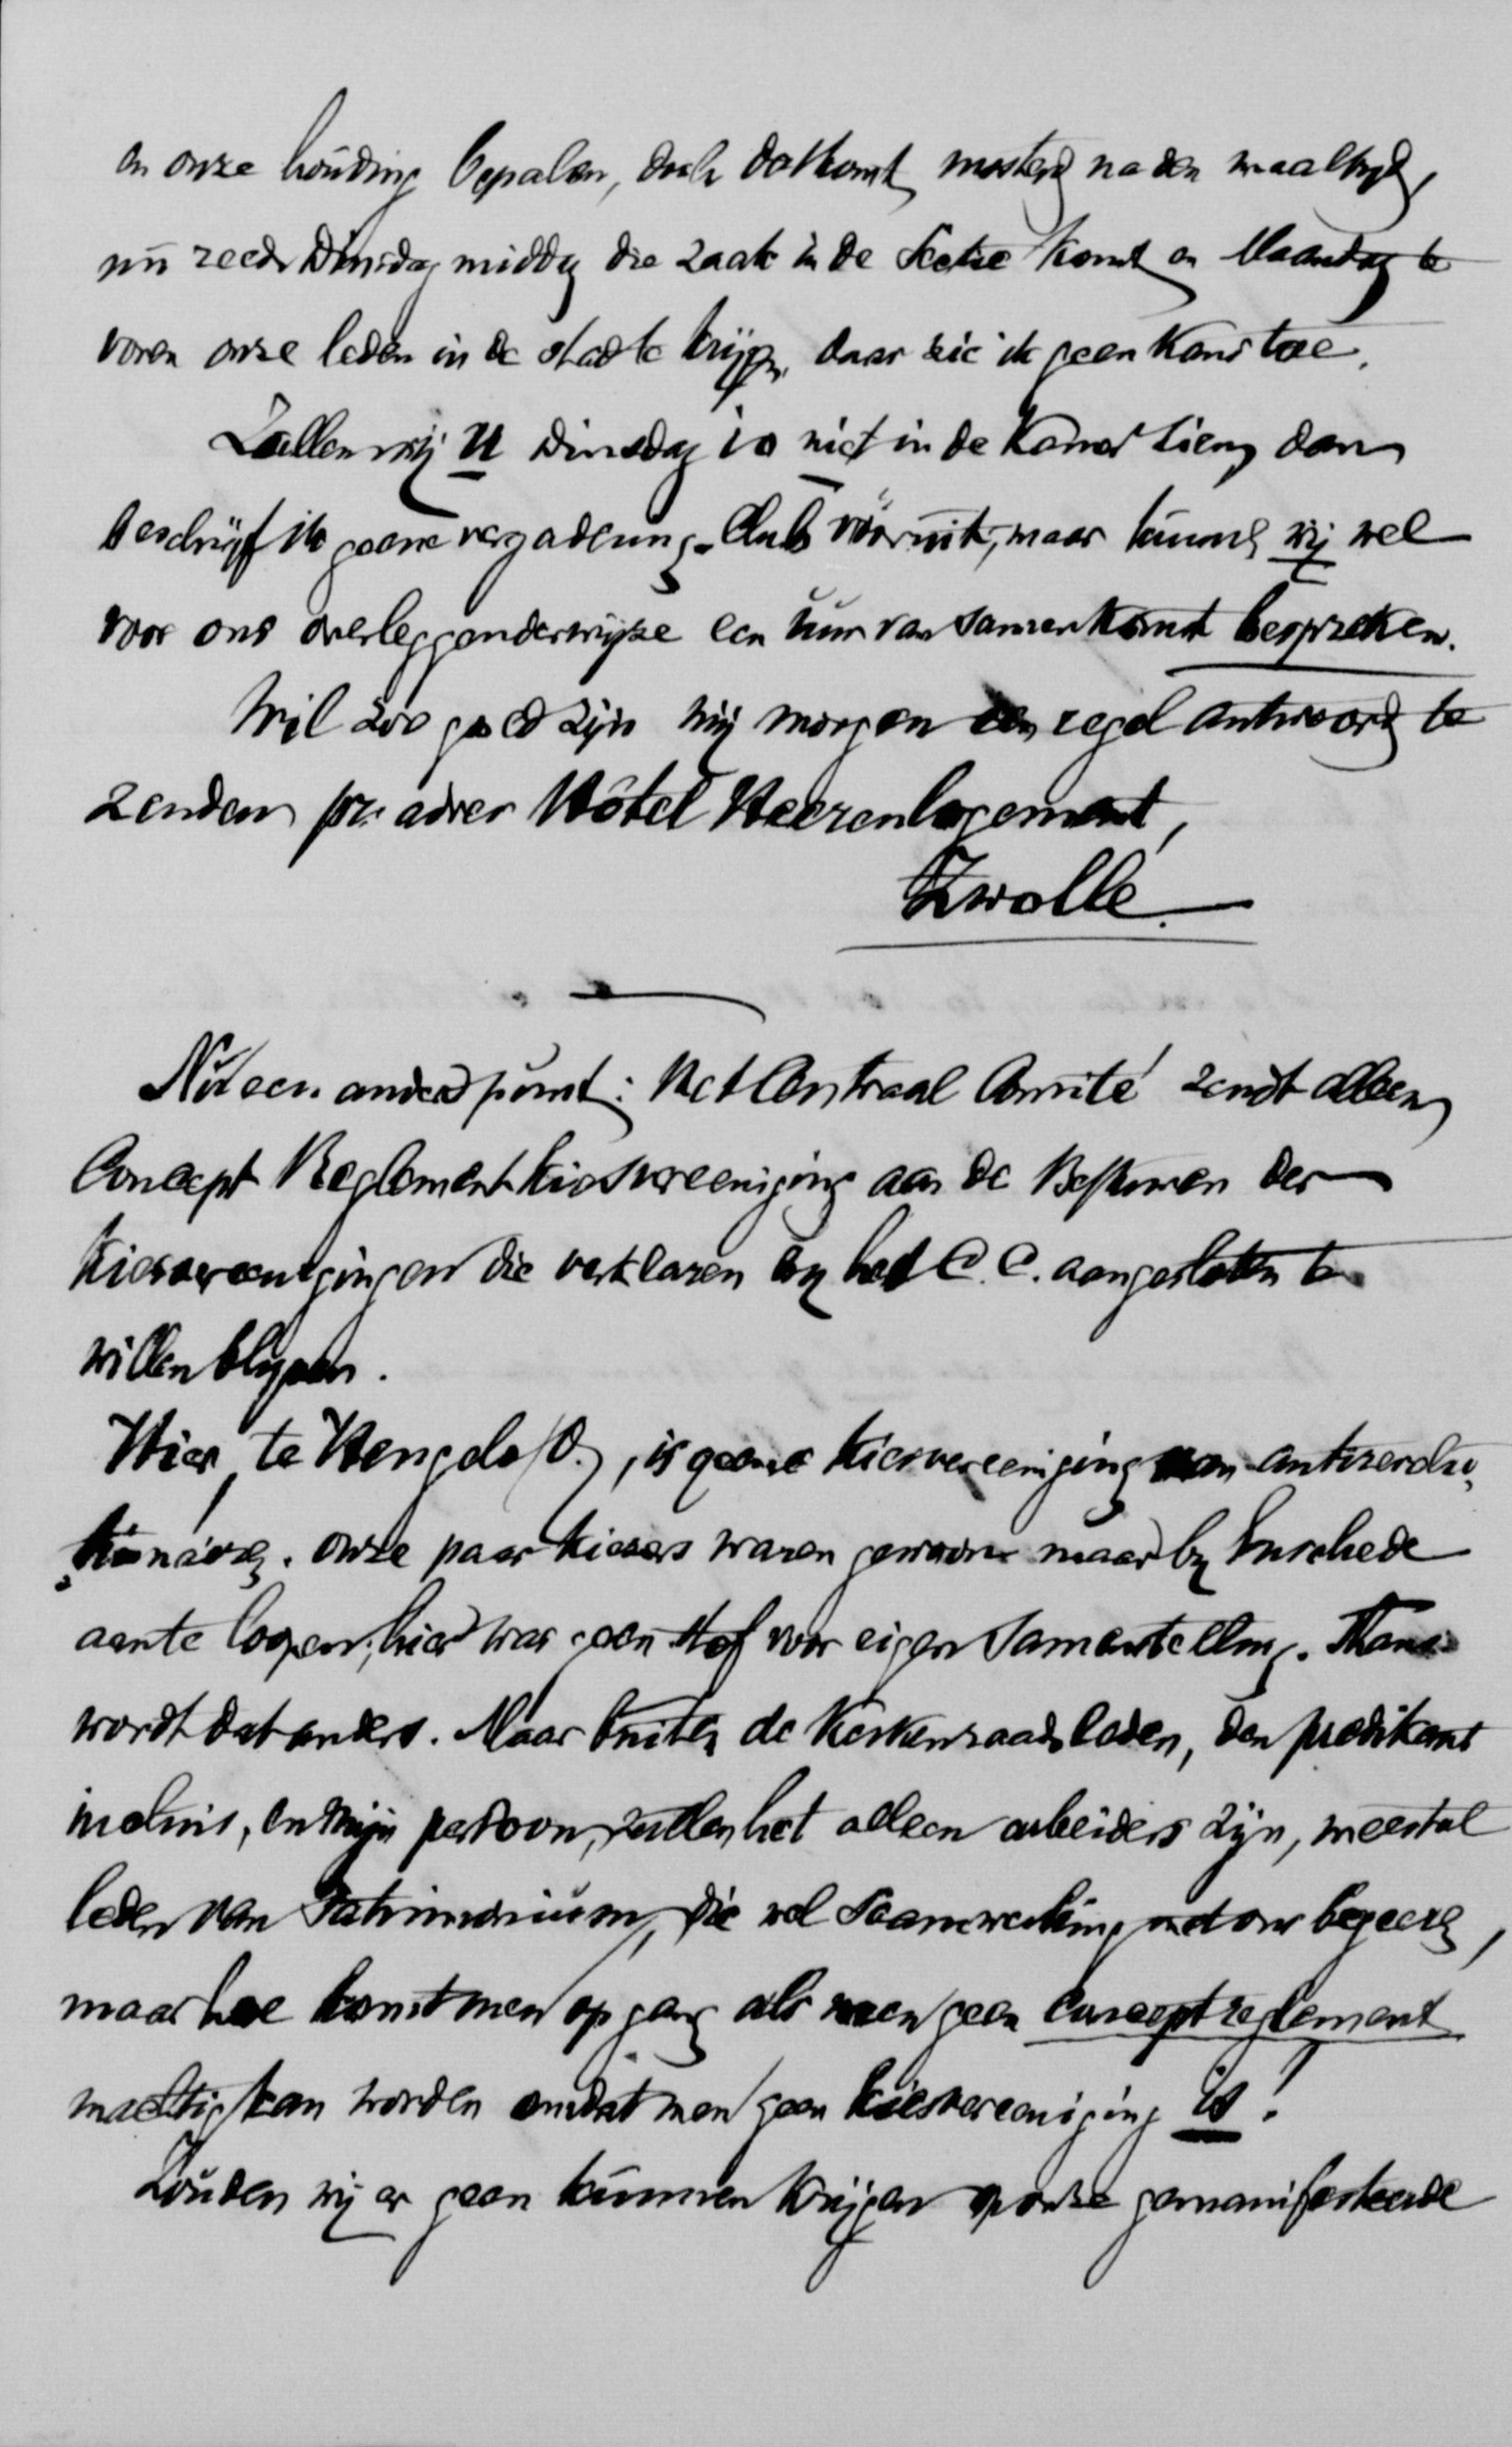 en onze houding bepalen, doch dat komt mosterd na den maaltyd,
nu reeds Dinsdag middag die zaak in de Sectie komt en Maandag te
voren onze leden in de stad te krijgen, daar zie ik geen kans toe.
Zullen wij U Dinsdag io niet in de Kamer zien, dan
beschrijf ik geene vergadering-Club vóóruit, maar kunnen wij wel
voor ons overleggenderwijze een uur van samenkomst bespreken.
Wil zoo goed zijn mij morgen een regel antwoord te
zenden pr. adres Hôtel Heerenlogement,
Zwolle.
Nu een ander punt: Het Centraal Comité zendt alleen
Concept Reglement Kiesvereeniging aan de Besturen der
Kiesvereenigingen die verklaren by het C.C. aangesloten te
willen blyven.
Hier, te Hengelo/O., is geene Kiesvereeniging van antirevolu-
tionairen. Onze paar kiezers waren gewoon maar by Enschede
aan te loopen; hier was geen stof voor eigen samenstelling. Thans
wordt dat anders. Maar buiten de Kerkenraadsleden, den predikant
incluis, en mijn persoon, zullen het alleen arbeiders zijn, meestal
leden van Patrimonium, die wel saamwerking met ons begeeren,
maar hoe komt men op gang als men geen conceptreglement
machtig kan worden omdat men geen Kiesvereeniging is!
Zouden wij er geen kunnen krijgen op onze gemanifesteerde